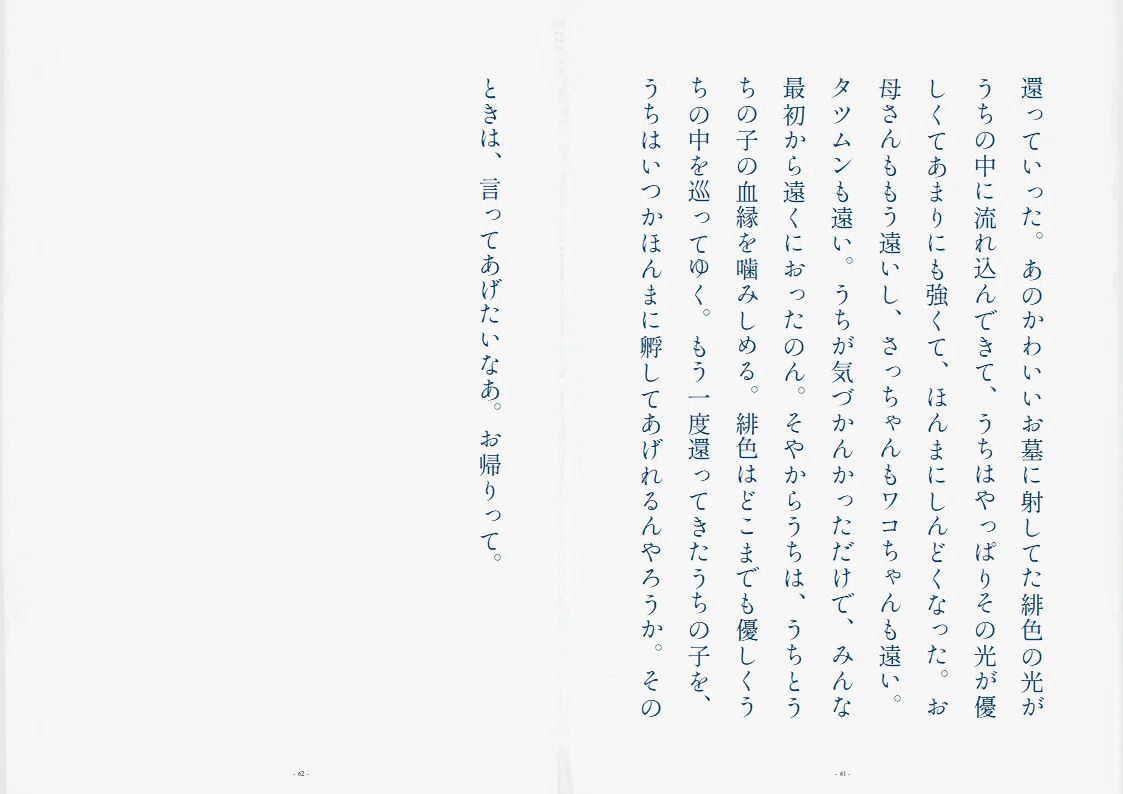 還っていった。あのかわいいお墓に射してた緋色の光が
うちの中に流れ込んできて、うちはやっぱりその光が優
しくてあまりにも強くて、ほんまにしんどくなった。お
母さんももう遠いし、さっちゃんもワコちゃんも遠い。
タツムンも遠い。うちが気づかんかっただけで、みんな
最初から遠くにおったのん。そやからうちは、うちとう
ちの子の血縁を噛みしめる。緋色はどこまでも優しくう
ちの中を巡ってゆく。もう一度還ってきたうちの子を、
うちはいつかほんまに孵してあげれるんやろうか。その
- 61 -
ときは、言ってあげたいなあ。お帰りって。
- 62 -